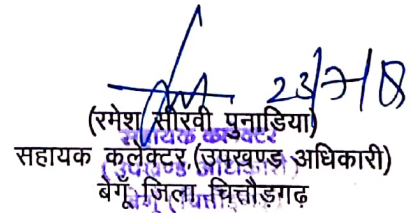 23/7/18
(रमेश सीरवी पुनाडिया)
सहायक कलेक्टर
सहायक कलेक्टर (उपखण्ड अधिकारी)
बेगूँ जिला चित्तौड़गढ़